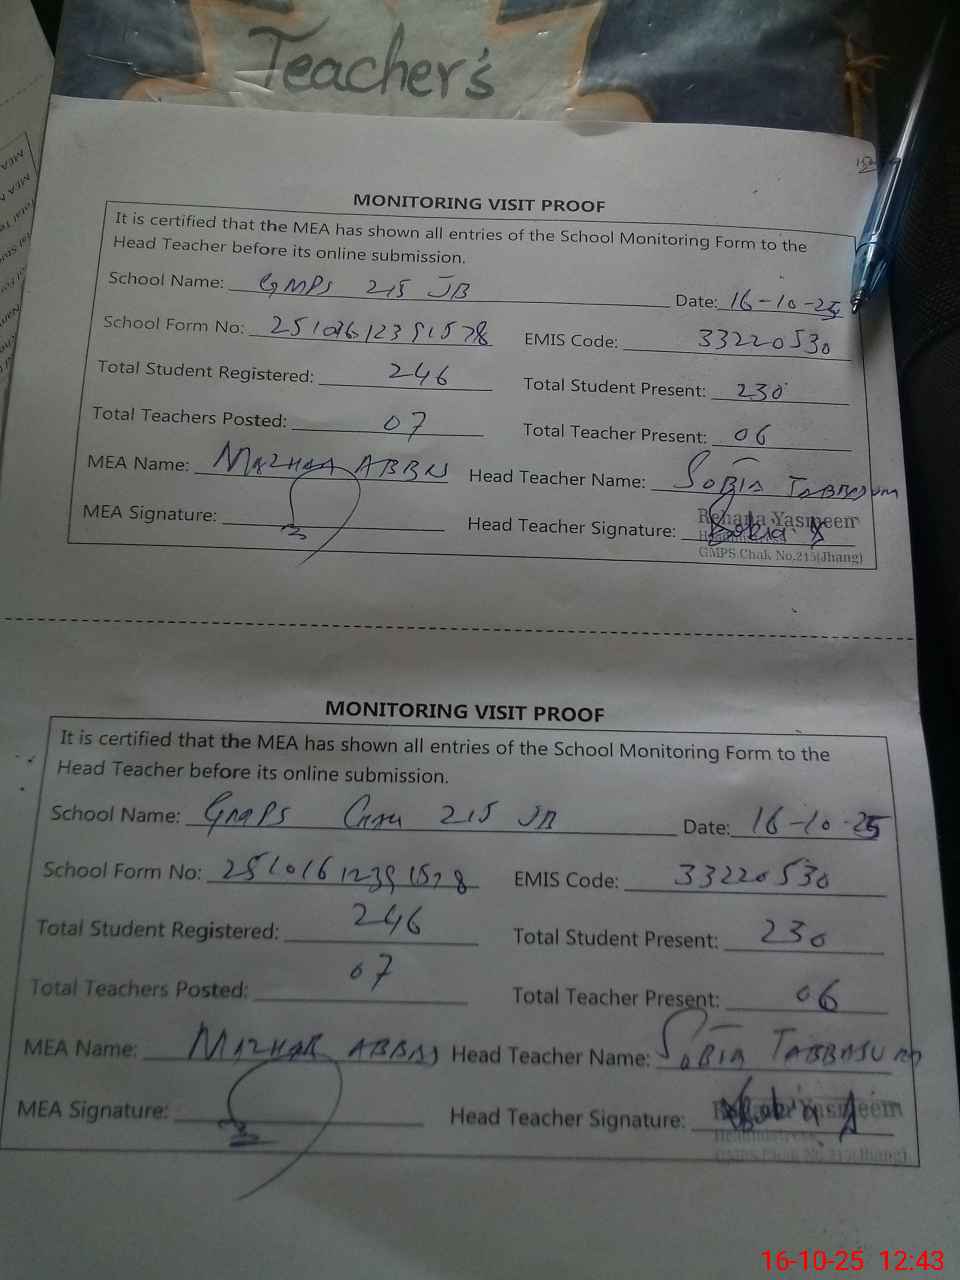 Teacher's
MONITORING VISIT PROOF
It is certified that the MEA has shown all entries of the School Monitoring Form to the
Head Teacher before its online submission.
School Name: GMPS 215 JB Date: 16-10-25
School Form No: EMIS Code: 33220530
Total Student Registered: 246 Total Student Present: 230
Total Teachers Posted: 07 Total Teacher Present: 06
MEA Name: MAZHAR ABBAS Head Teacher Name: SOBIA TABBASUM
MEA Signature: Head Teacher Signature: Rehana Yasmeen
GMPS.Chak No.215(Jhang)
MONITORING VISIT PROOF
It is certified that the MEA has shown all entries of the School Monitoring Form to the
Head Teacher before its online submission.
School Name: GMPS 215 JB Date: 16-10-25
School Form No: 25101612391578 EMIS Code: 33220530
Total Student Registered: 246 Total Student Present: 230
Total Teachers Posted: 07 Total Teacher Present: 06
MEA Name: MAZHAR ABBAS Head Teacher Name: SOBIA TABBASUM
MEA Signature: Head Teacher Signature:
GMPS.Chak No.215(Jhang)
16-10-25 12:43